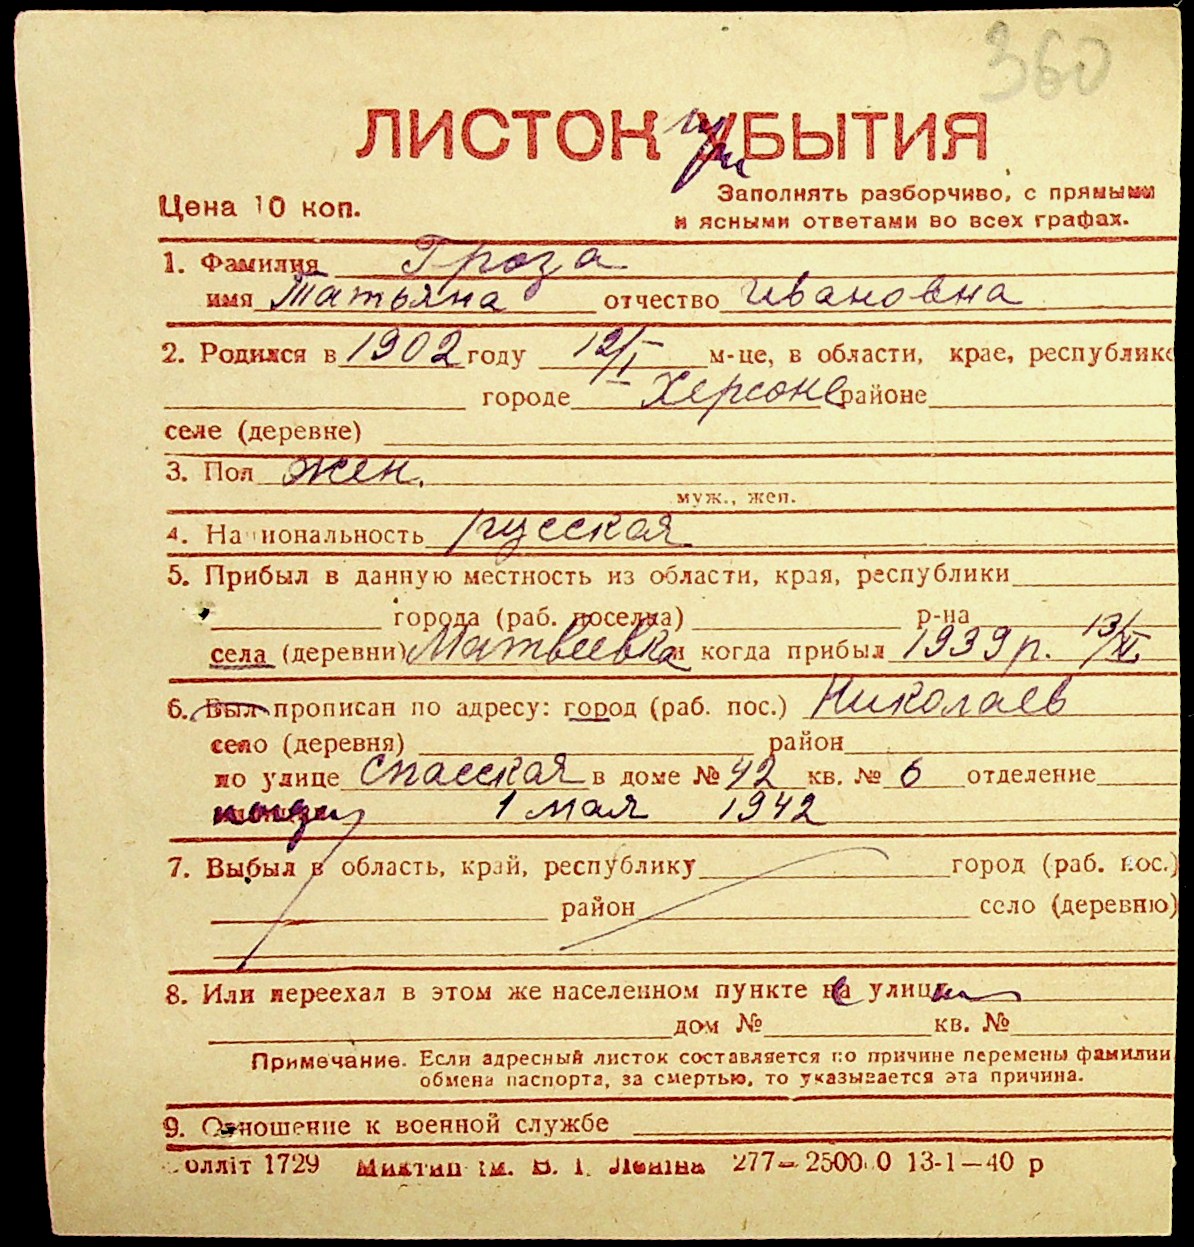 360
ЛИСТОК при УБЫТИЯ
Цена 10 коп.
Заполнять разборчиво, с прямыми
и ясными ответами во всех графах.
1. Фамилия Гроза
имя Татьяна отчество Ивановна
2. Родился в 1902 году 12/I м-це, в области, крае, республике
городе Херсоне районе
селе (деревне)
3. Пол жен.
муж., жен.
4. Национальность русская
5. Прибыл в данную местность из области, края, республики
города (раб. поселка) р-на
села (деревни) Матвеевка и когда прибыл 1939 р. 13/XI
6. Был прописан по адресу: город (раб. пос.) Николаев
село (деревня) район
по улице Спасская в доме № 42 кв. № 6 отделение
когда 1 мая 1942
7. Выбыл в область, край, республику город (раб. пос.)
район село (деревню)
8. Или переехал в этом же населенном пункте на улицу
дом № кв. №
Примечание. Если адресный листок составляется по причине перемены фамилии
обмена паспорта, за смертью, то указывается эта причина.
9. Отношение к военной службе
олліт 1729 Миктип ім. В. І. Леніна 277—250000 13-1—40 р